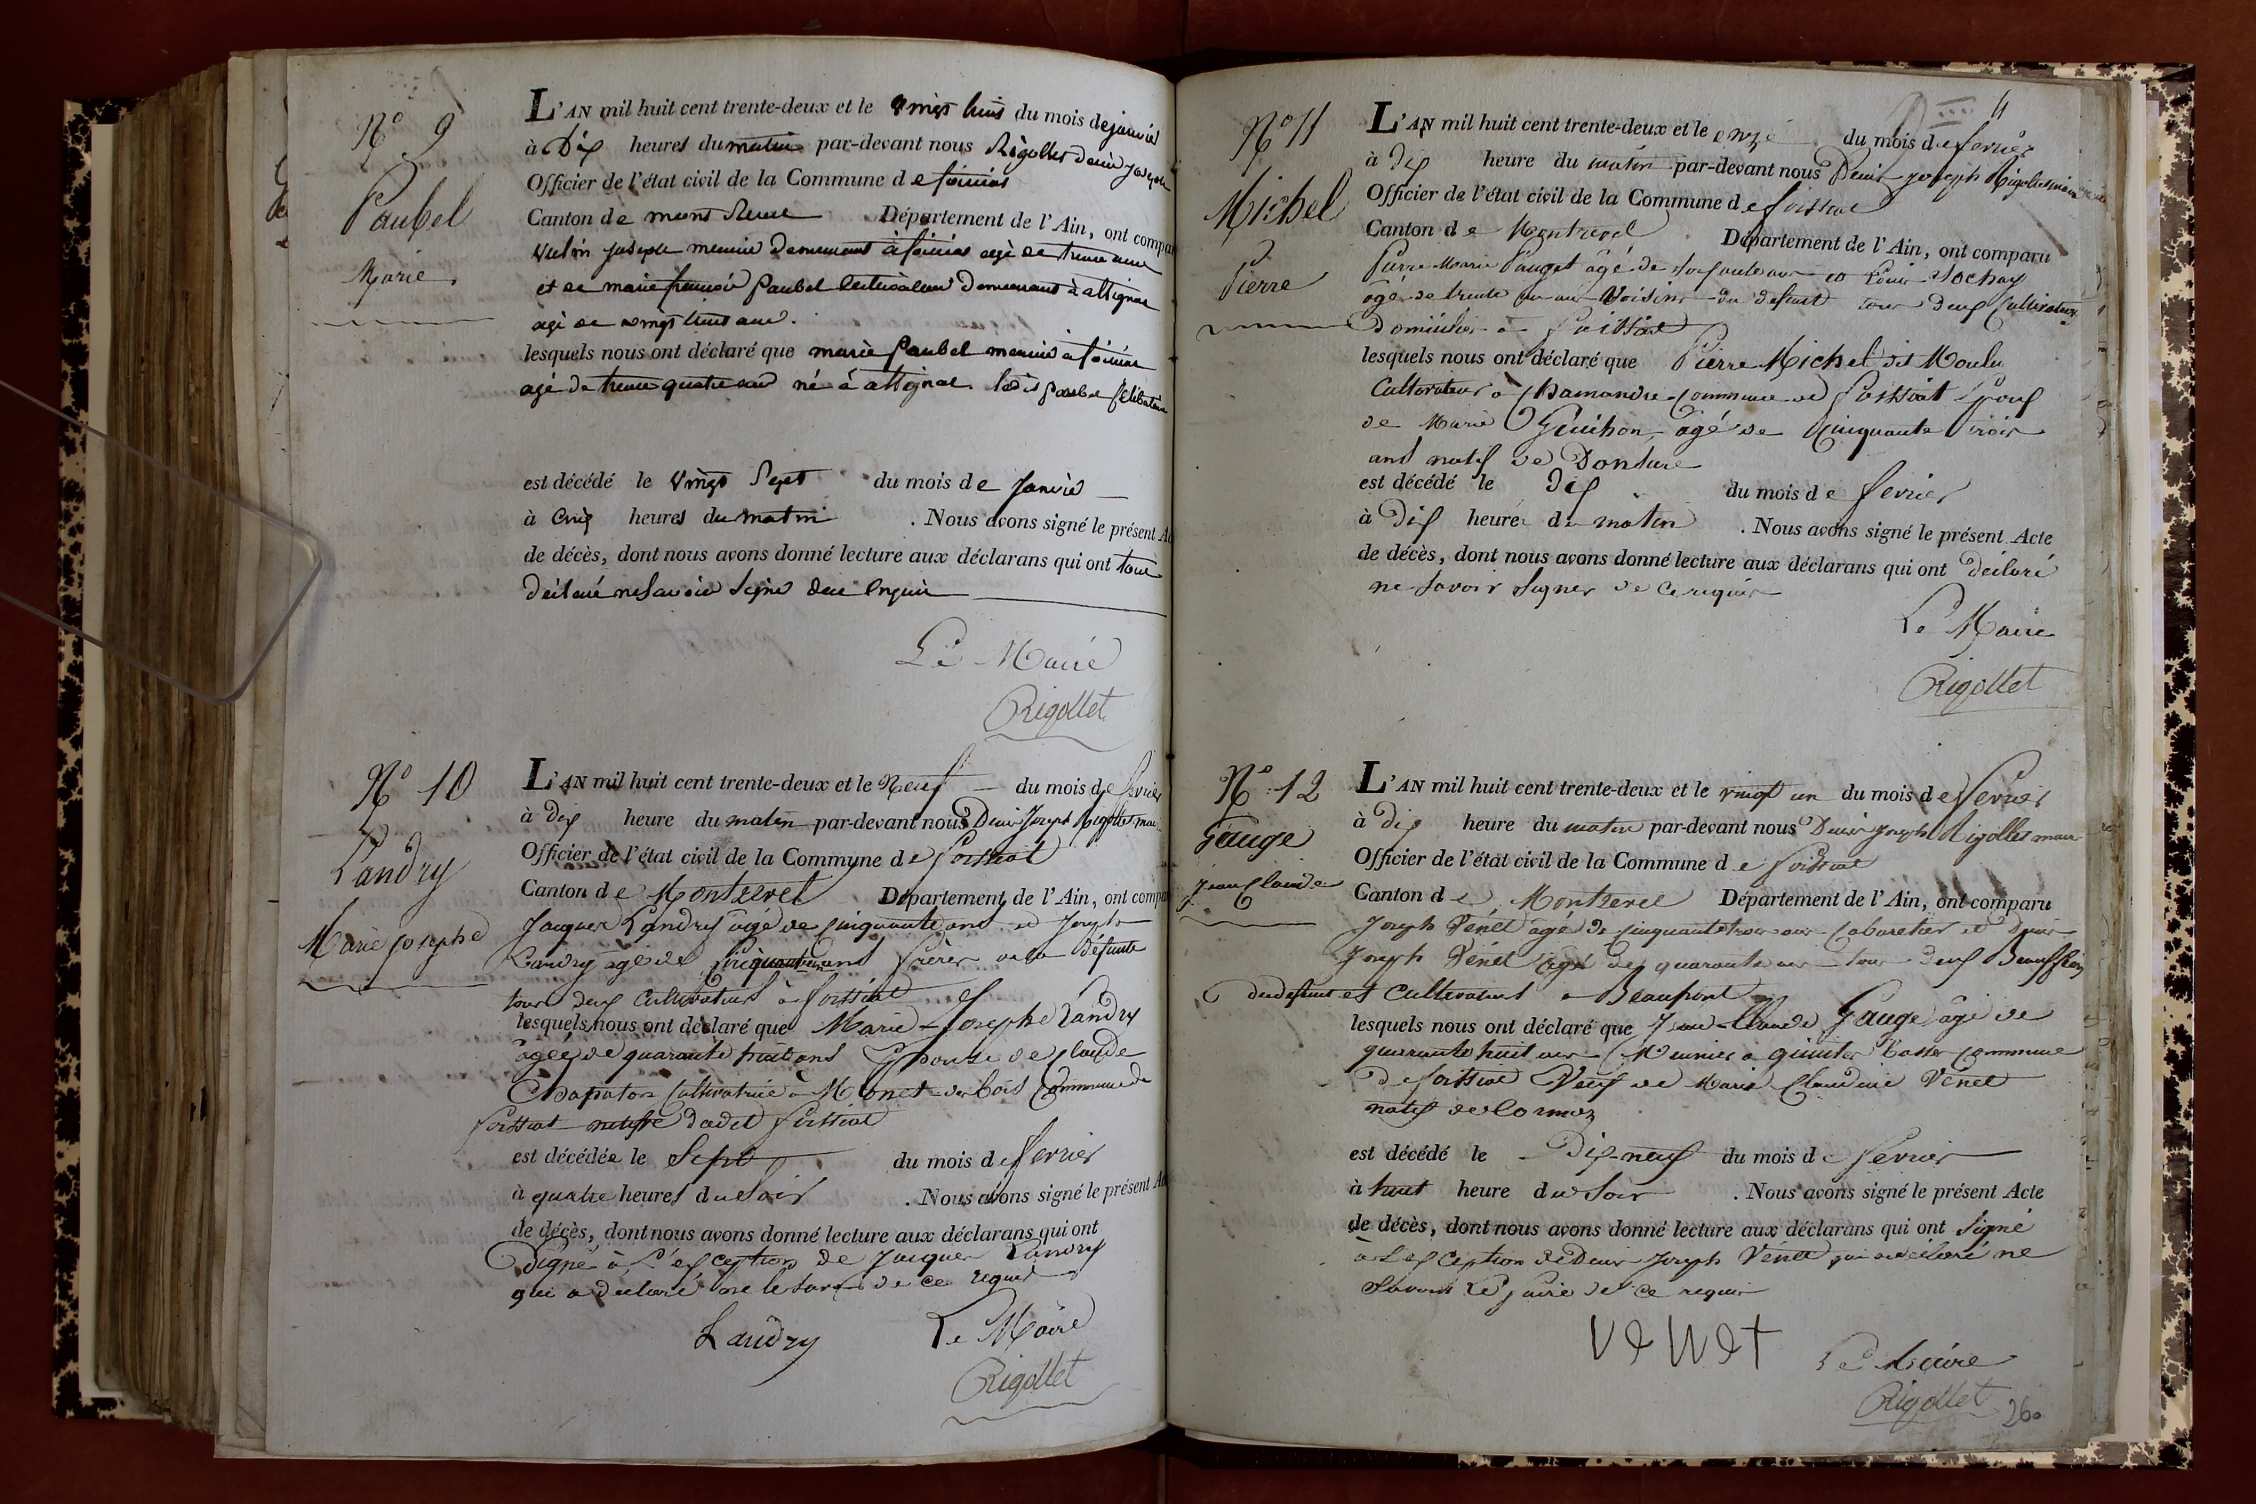 N° 9
Paubel
Marie
L'AN mil huit cent trente-deux et le vingt huit du mois de janvié
à Dix heures du matin par-devant nous Rigollet denis joseph
Officier de l'état civil de la Commune de foissiat
Canton de mont Revel Département de l'Ain, ont compar
joseph meunié demeurant à foissiat agé de trente
et de marie Paubel demeurant à attignat
agé de vingt huit ans.
lesquels nous ont déclaré que marie Paubel meunié à foissiat
agé de trente quatre ans né à attignat
est décédé le vingt Sept du mois de Janvié
à cinq heures du matin . Nous avons signé le présent Ac
de décès, dont nous avons donné lecture aux déclarans qui ont tous
déclaré ne savoir signé
Le Mairé
Rigollet
N° 10
Landry
Marie josephe
L'AN mil huit cent trente-deux et le Neuf du mois de fevrier
à dix heure du matin par-devant nous Denis Joseph Rigollet mair
Officier de l'état civil de la Commune de Foissiat
Canton de Montrevel Département de l'Ain, ont compa
Jacques Landry agé de cinquante ans et Joseph
Landry agé de ans frères de la défunte
tous deux Cultivateurs à foissiat
lesquels nous ont déclaré que Marie-Josephe Landry
âgée de quarante huit ans Epouse de Claude
Cultivatrice à commune de
foissiat native dudit foissiat
est décédée le Sept du mois de fevrier
à quatre heures du Soir . Nous avons signé le présent Ac
de décès, dont nous avons donné lecture aux déclarans qui ont
Signé à l'exception de Jacques Landry
qui a declaré ne le savoir de ce requis
Landry Le Maire
Rigollet
4
N° 11
Michel
Pierre
L'AN mil huit cent trente-deux et le onze du mois de fevrier
à dix heure du matin par-devant nous Denis joseph Rigollet maire
Officier de l'état civil de la Commune de foissiat
Canton de Montrevel Département de l'Ain, ont comparu
Pierre Marie Pauget âgé de soixante ans et Louis Sochay
âgé de trente un ans Voisins du défunt tous deux Cultivateurs
Domiciliés à foissiat
lesquels nous ont déclaré que Pierre Michel dit Moulu
Cultivateur à Chamandre commune de foissiat Epoux
de Marie Guichon, agé de Cinquante trois
ans natif de Donsure
est décédé le dix du mois de fevrier
à Dix heure du matin . Nous avons signé le présent Acte
de décès, dont nous avons donné lecture aux déclarans qui ont déclaré
ne savoir signer de ce requis
Le Maire
Rigollet
N° 12
Gauge
Jean Claude
L'AN mil huit cent trente-deux et le vingt un du mois de fevrier
à dix heure du matin par-devant nous Denis joseph Rigollet maire
Officier de l'état civil de la Commune de foissiat
Canton de Montrevel Département de l'Ain, ont comparu
Joseph Vénet âgé de cinquante trois ans Cabaretier et Denis
Joseph Vénet âgé de quarante ans tous deux Beauffrère
du defunt et Cultivateurs à Beaupont
lesquels nous ont déclaré que Jean-Claude Gauge âgé de
quarante huit ans Meunier à commune
de foissiat Veuf de Marie Claudine Vénet
natif de Cormoz
est décédé le Dix-neuf du mois de fevrier
à huit heure du Soir . Nous avons signé le présent Acte
de décès, dont nous avons donné lecture aux déclarans qui ont signé
à l'exception de Denis Joseph Vénet qui a déclaré ne
savoir le faire de ce requis
venet
Le Maire
Rigollet
260